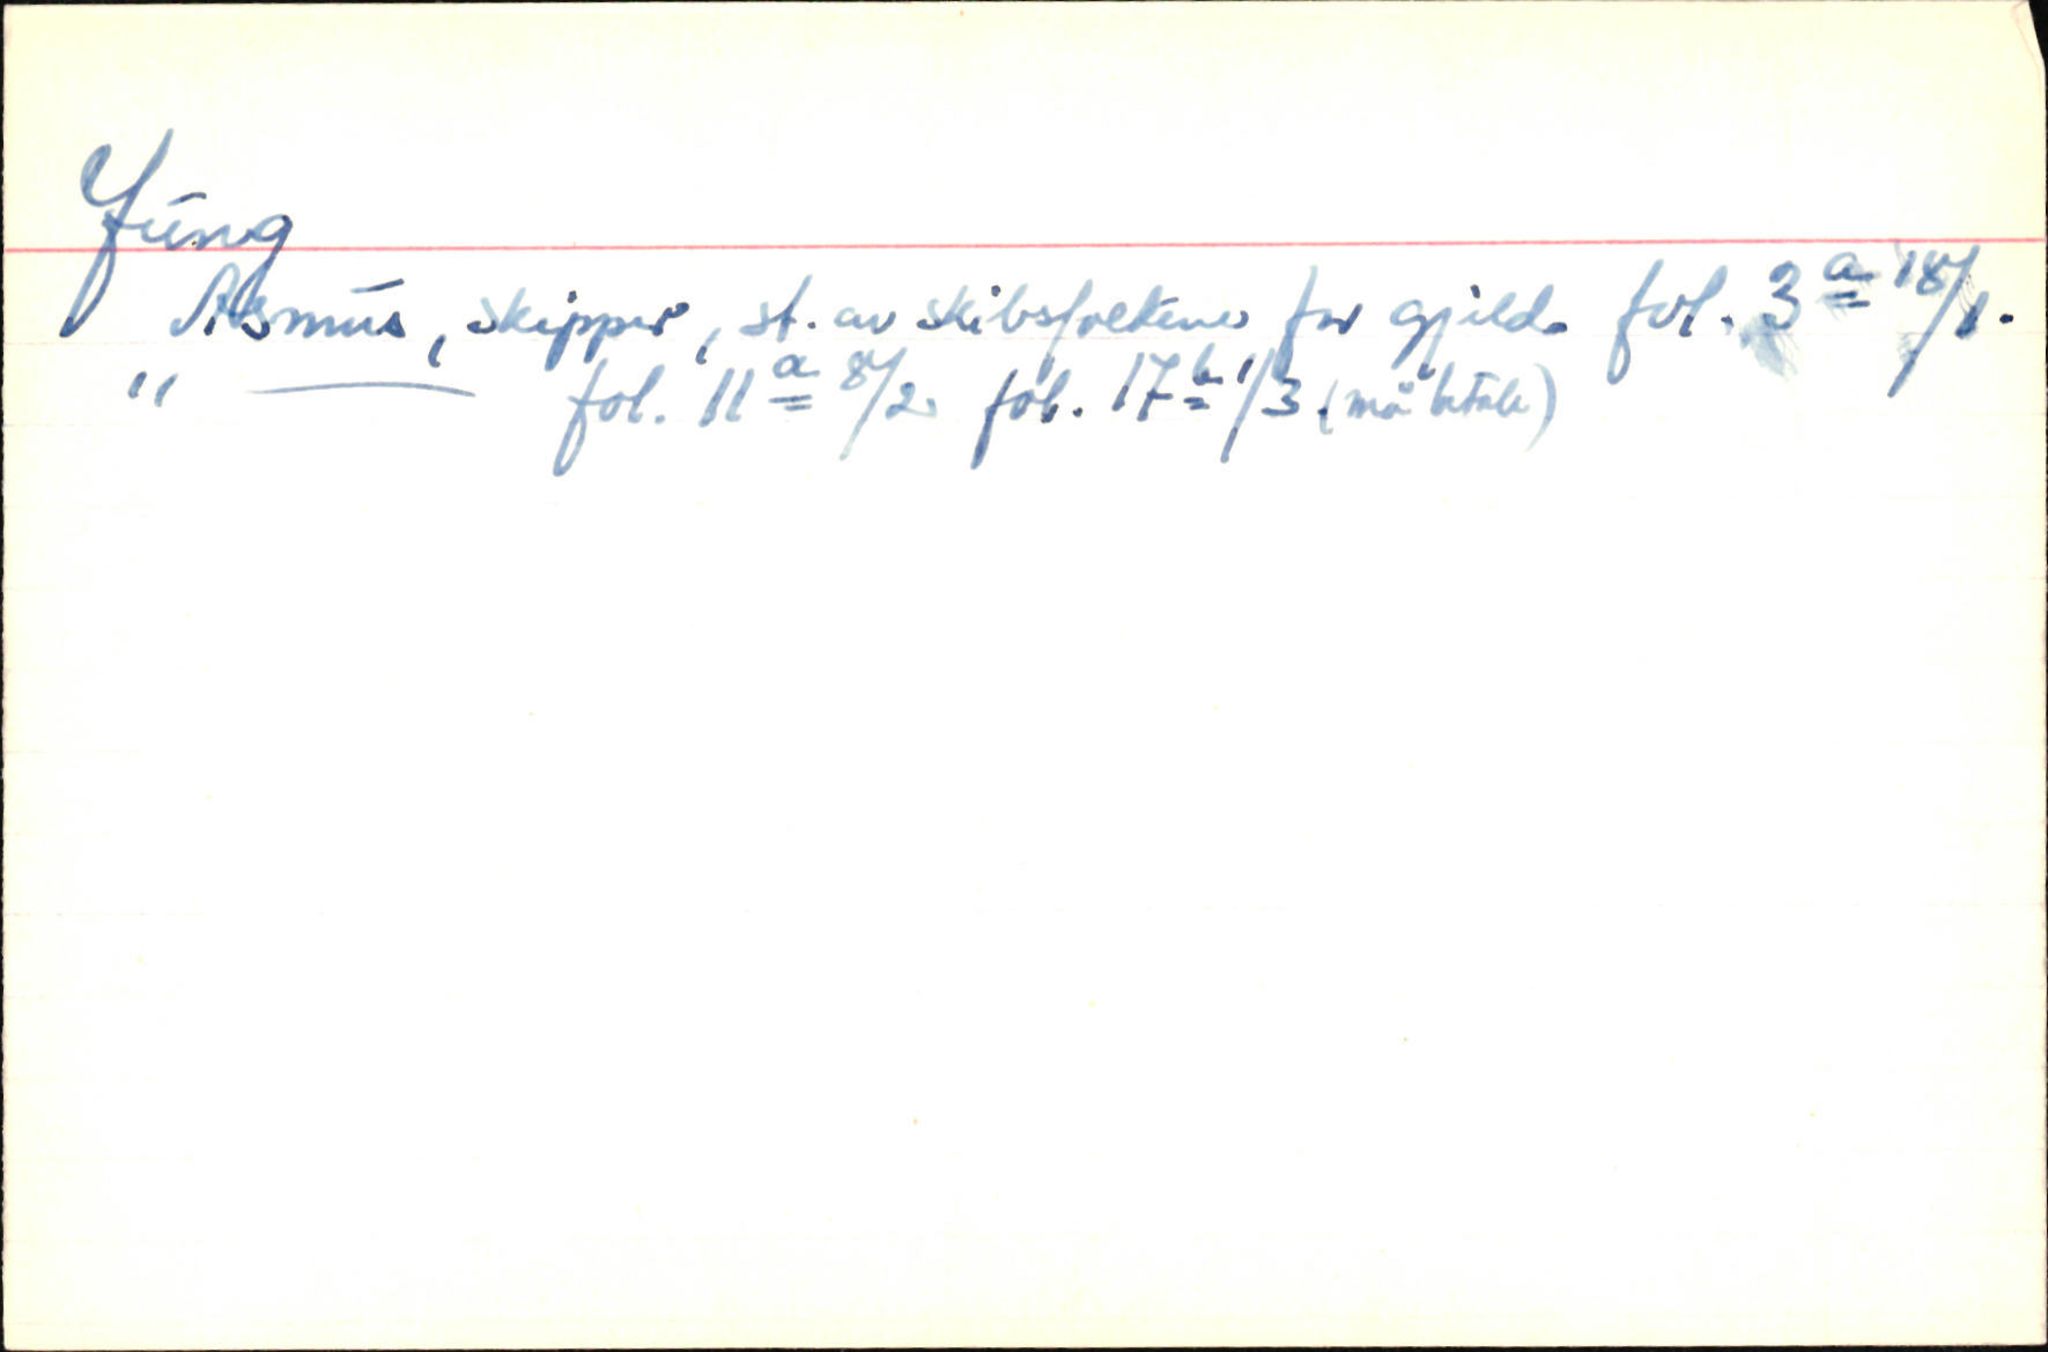 Jung
Asmus, skipper, st. av skibsfolkene for gjeld. fol. 3a 18/1.
" — fol. 11a 8/2. fol. 17b 1/3. (må betale)